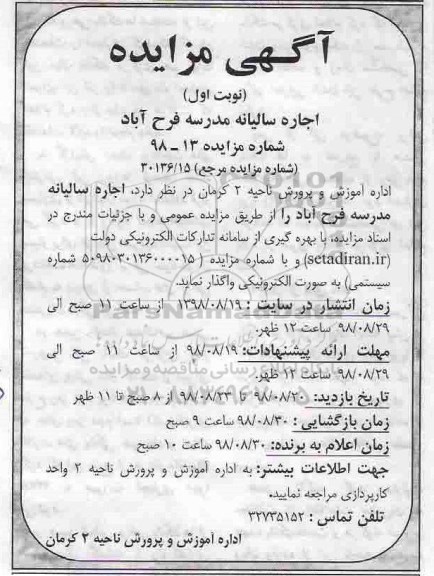 آگهی مزایده
(نوبت اول)
اجاره سالیانه مدرسه فرح آباد
شماره مزایده ۱۳ ـ ۹۸
(شماره مزایده مرجع ۳۰۱۳۶/۱۵)
اداره آموزش و پرورش ناحیه ۲ کرمان در نظر دارد، اجاره سالیانه
مدرسه فرح آباد را از طریق مزایده عمومی و با جزئیات مندرج در
اسناد مزایده، با بهره گیری از سامانه تدارکات الکترونیکی دولت
(setadiran.ir) و با شماره مزایده ( ۵۰۹۸۰۳۰۱۳۶۰۰۰۰۱۵ شماره
سیستمی) به صورت الکترونیکی واگذار نماید.
زمان انتشار در سایت : ۱۳۹۸/۰۸/۱۹ از ساعت ۱۱ صبح الی
۹۸/۰۸/۲۹ ساعت ۱۲ ظهر.
مهلت ارائه پیشنهادات: ۹۸/۰۸/۱۹ از ساعت ۱۱ صبح الی
۹۸/۰۸/۲۹ ساعت ۱۲ ظهر.
تاریخ بازدید: ۹۸/۰۸/۲۰ تا ۹۸/۰۸/۲۳ از ۸ صبح تا ۱۱ ظهر
زمان بازگشایی : ۹۸/۰۸/۳۰ ساعت ۹ صبح
زمان اعلام به برنده: ۹۸/۰۸/۳۰ ساعت ۱۰ صبح
جهت اطلاعات بیشتر: به اداره آموزش و پرورش ناحیه ۲ واحد
کارپردازی مراجعه نمایید.
تلفن تماس : ۳۲۷۳۵۱۵۲
اداره آموزش و پرورش ناحیه ۲ کرمان